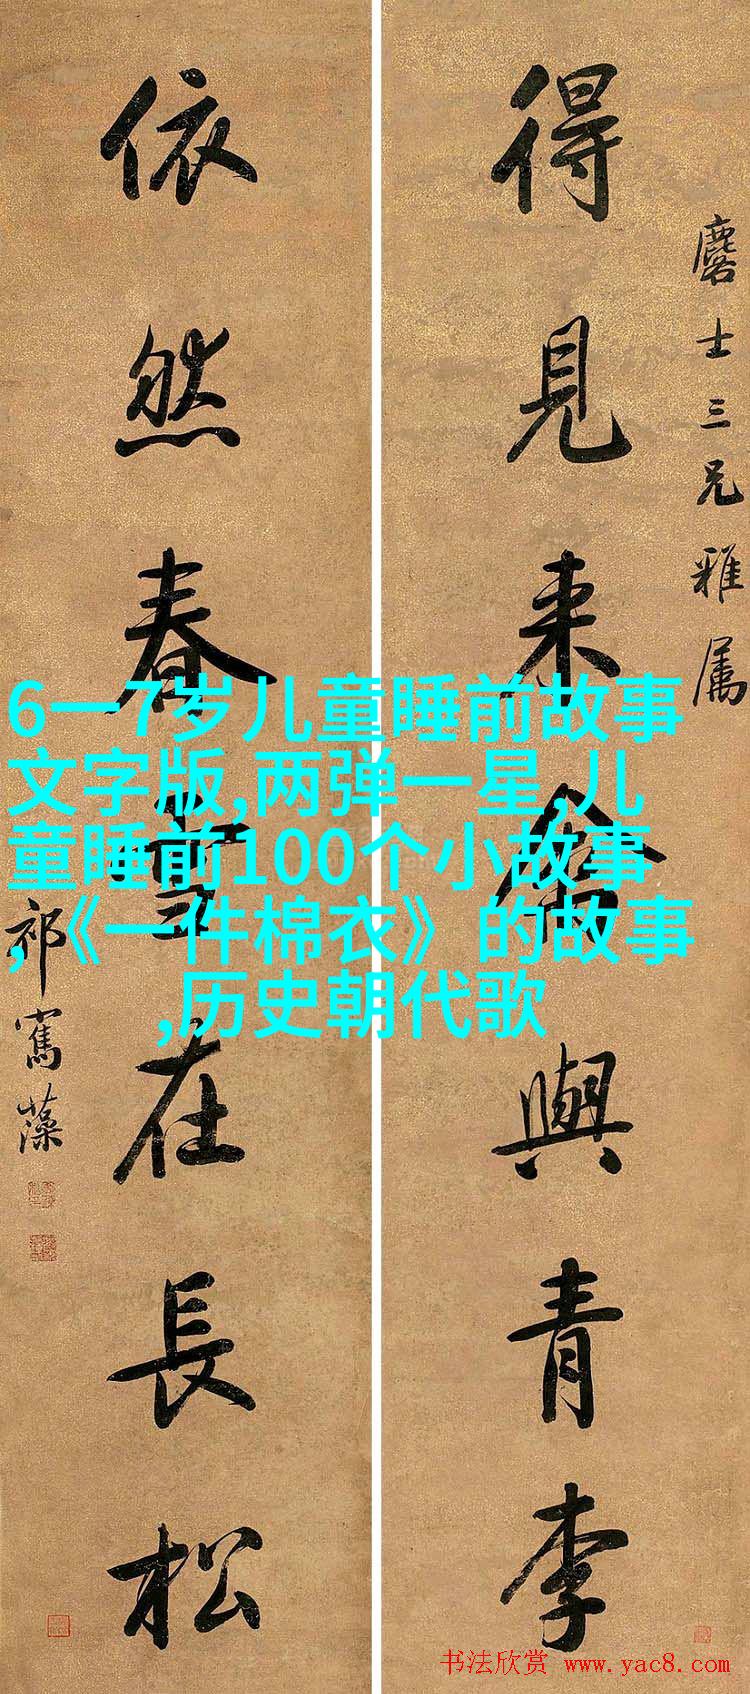 得見来禽與青李
麐士三兄雅属
依然春雪在長松
祁寯藻
6一7岁儿童睡前故事
文字版,两弹一星,儿
童睡前100个小故事
,《一件棉衣》的故事
,历史朝代歌
书法欣赏 www.yac8.com